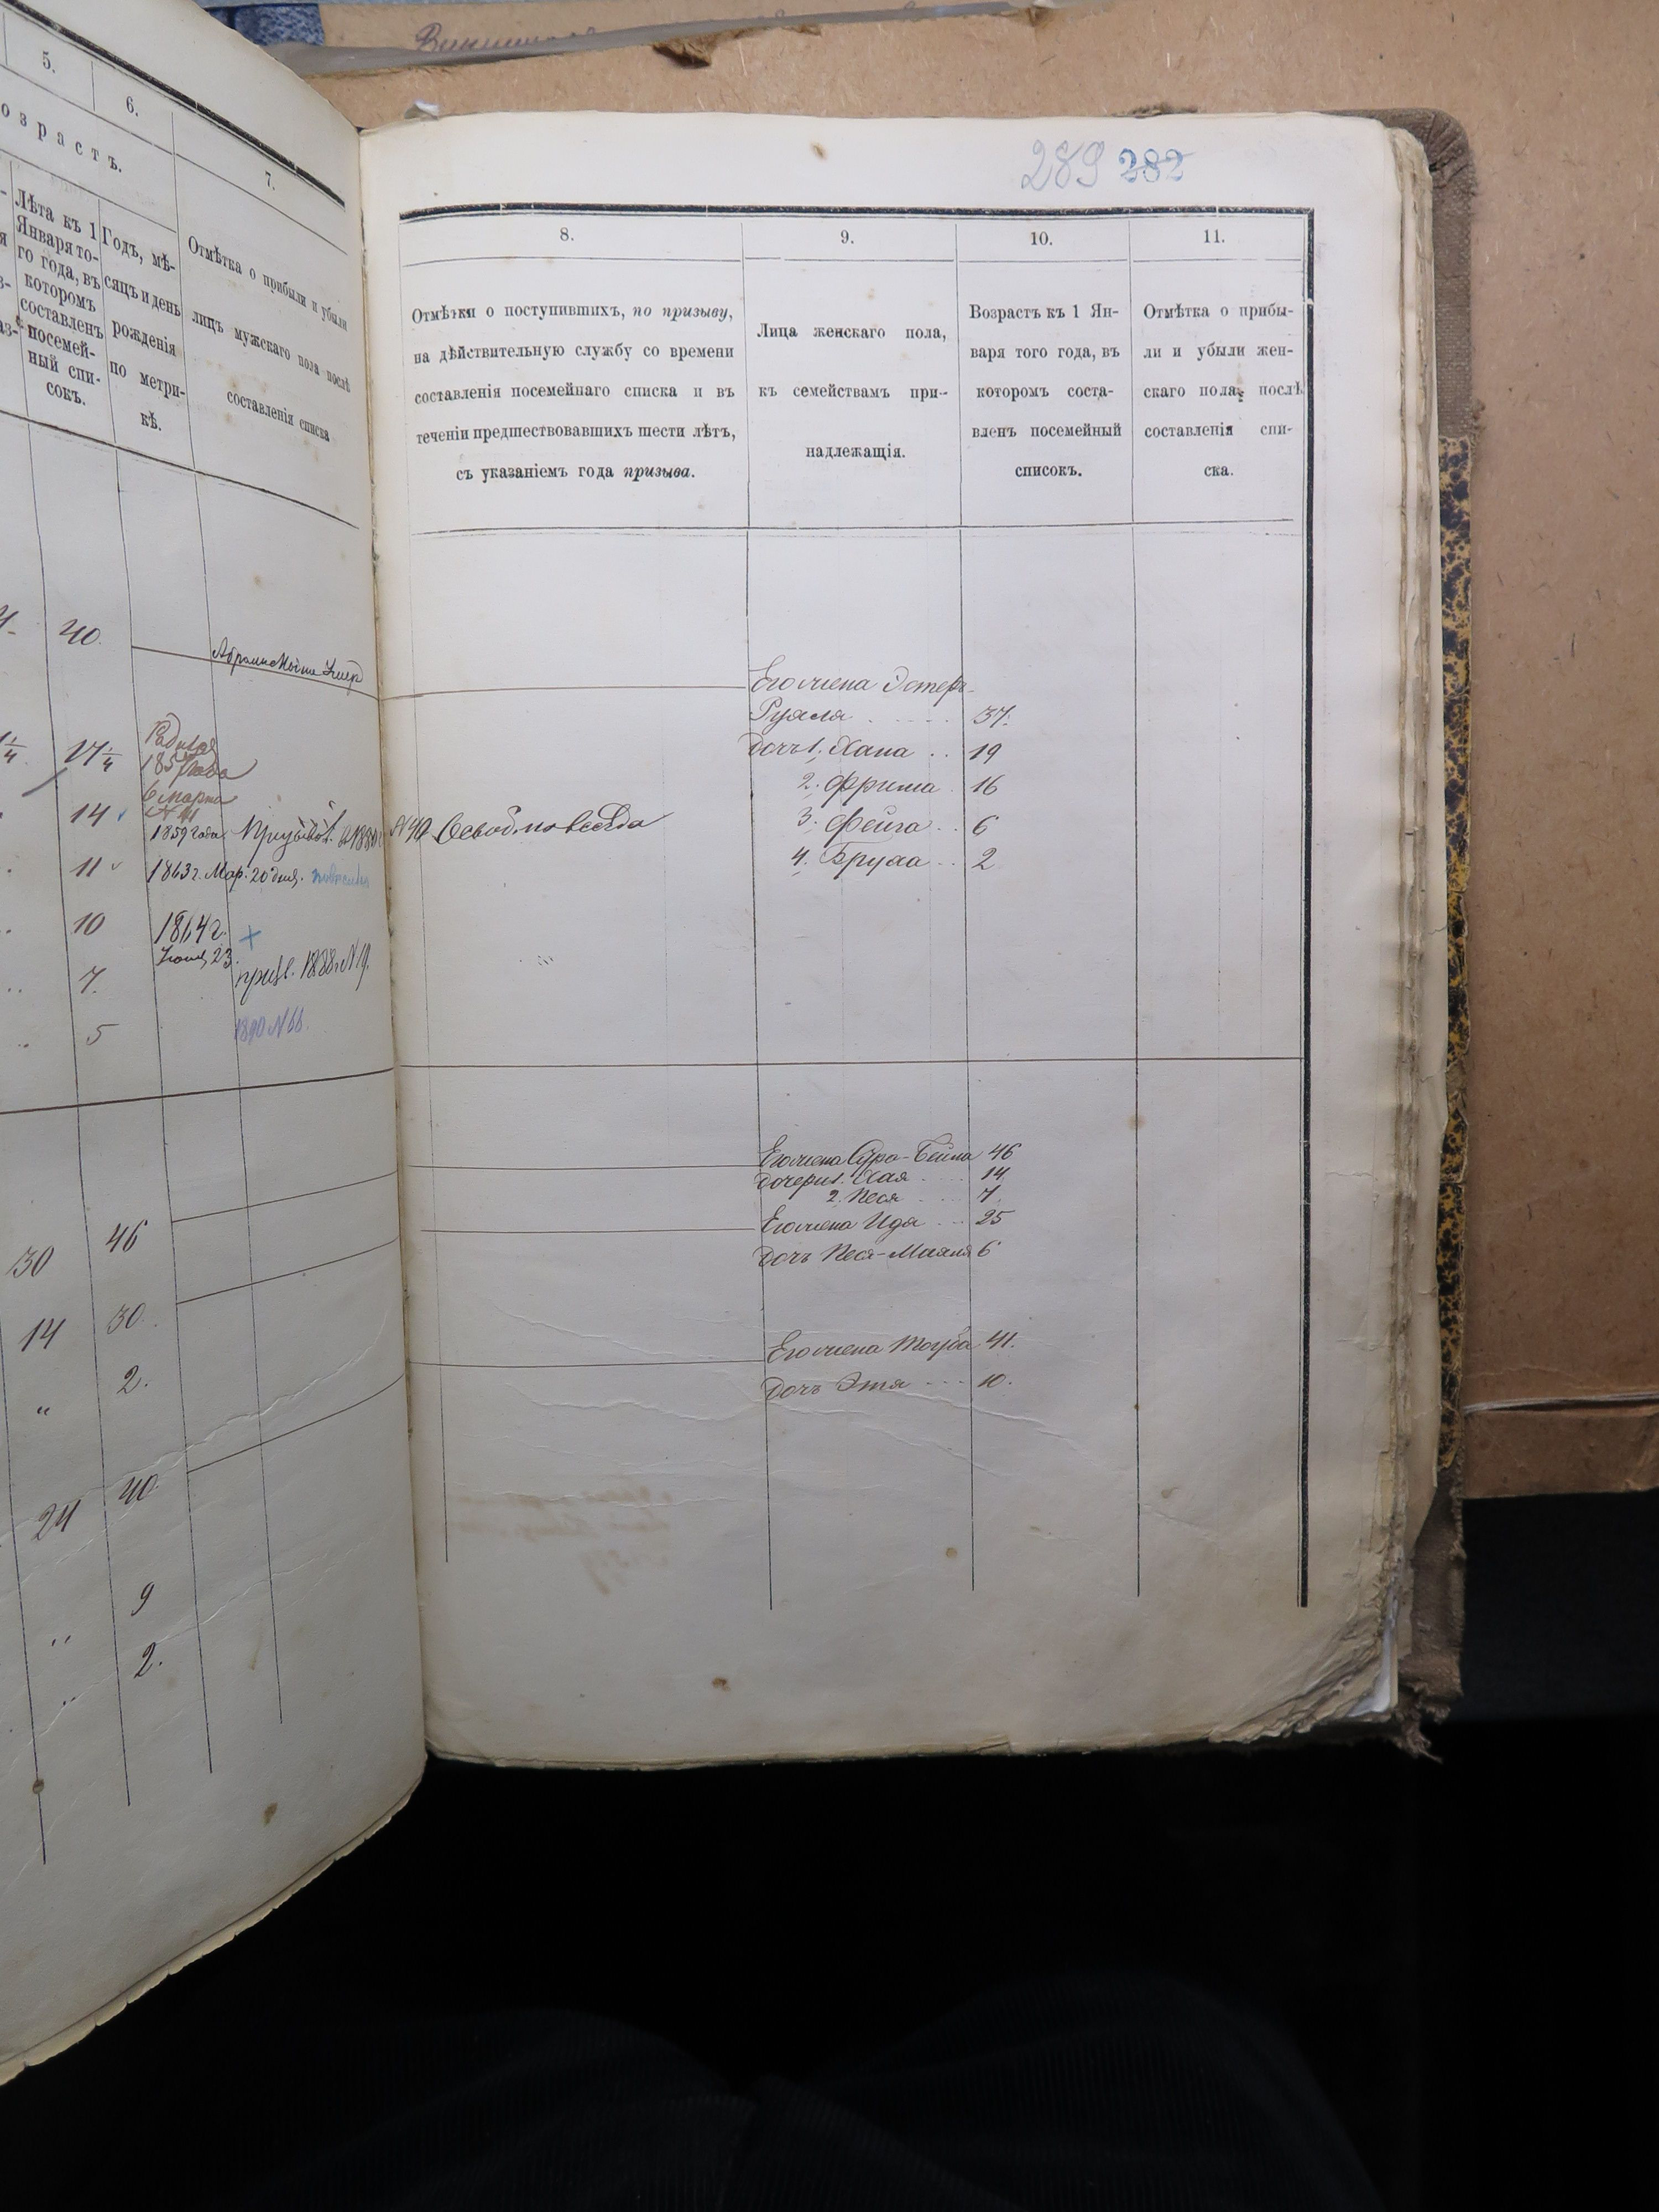 5.
6.
озрастъ.
7.
Лѣта къ 1
Января то-
го года, въ
которомъ
составленъ
посемей-
ный спи-
сокъ.
Годъ, мѣ-
сяцъ и день
рожденія
по метри-
кѣ.
Отмѣтка о прибыли и убыли
лицъ мужскаго пола послѣ
составленія списка
40.
17 1/4
185
6 марта
14
1859 года
11
1863 г. Мар. 20 дня.
10
1864 г.
23.
7.
приз. 1888 г. N 19.
5
1890 N 68.
46
30
30.
14
2.
"
40
24
9
"
2.
"
289 282
8.
9.
10.
11.
Отмѣтки о поступившихъ, по призыву,
на дѣйствительную службу со времени
составленія посемейнаго списка и въ
теченіи предшествовавшихъ шести лѣтъ,
съ указаніемъ года призыва.
Лица женскаго пола,
къ семействамъ при-
надлежащія.
Возрастъ къ 1 Ян-
варя того года, въ
которомъ соста-
вленъ посемейный
списокъ.
Отмѣтка о прибы-
ли и убыли жен-
скаго пола, послѣ
составленія спи-
ска.
Его жена Эстеръ-
Рухля 37.
дочь 1. Хана 19
2. Фрима 16
Освоб. навсегда
3. Фейга 6
4. Бруха 2
Его жена Сура-Бейла 46
дочери 1. Хая 14
2. Песя 7.
Его жена Ида 25
дочь Песя-Маля 6
Его жена Тауба 41.
дочь Этя 10.